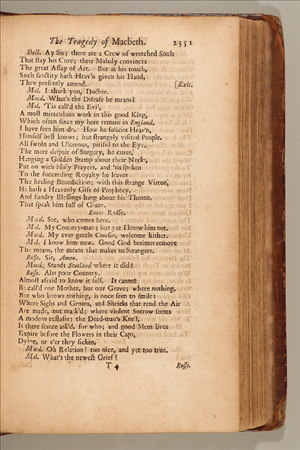 The Tragedy of Macbeth. 2351
Doct. Ay Sir: there are a Crew of wretched Souls
That stay his Cure; their Malady convinces
The great Assay of Art. But at his touch,
Such sanctity hath Heav'n given his Hand,
They presently amend. [Exit.
Mal. I thank you, Doctor.
Macd. What's the Disease he means?
Mal. 'Tis call'd the Evil,
A most miraculous work in this good King,
Which often since my here remain in England,
I have seen him do. How he solicits Heav'n,
Himself best knows; but strangely visited People,
All swoln and Ulcerous, pitiful to the Eye,
The meer despair of Surgery, he cures,
Hanging a Golden Stamp about their Necks,
Put on with Holy Prayers, and 'tis spoken
To the succeeding Royalty he leaves
The healing Benediction; with this strange Virtue,
He hath a Heavenly Gift of Prophecy,
And sundry Blessings hang about his Throne,
That speak him full of Grace.
Enter Rosse.
Macd. See, who comes here.
Mal. My Country-man; but yet I know him not.
Macd. My ever gentle Cousin, welcome hither.
Mal. I know him now. Good God betimes remove
The means, the means that makes us Strangers.
Rosse. Sir, Amen.
Macd. Stands Scotland where it did?
Rosse. Alas poor Country,
Almost afraid to know it self. It cannot
Be call'd our Mother, but our Grave; where nothing,
But who knows nothing, is once seen to smile:
Where Sighs and Groans, and Shrieks that rend the Air
Are made, not mark'd; where violent Sorrow seems
A modern ecstasie: the Dead-man's Knell,
Is there scarce ask'd, for who; and good Mens lives
Expire before the Flowers in their Caps,
Dying, or e'er they sicken.
Macd. Oh Relation! too nice, and yet too true.
Mal. What's the newest Grief?
T 4 Rosse.